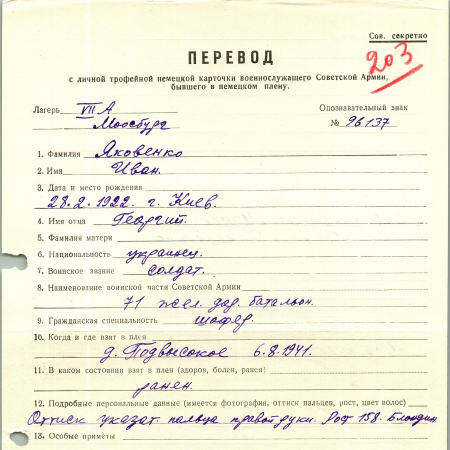 Сов. секретно
203
ПЕРЕВОД
с личной трофейной немецкой карточки военнослужащего Советской Армии,
бывшего в немецком плену.
Лагерь VII А Опознавательный знак
Моосбург № 96137
1. Фамилия Яковенко
2. Имя Иван.
3. Дата и место рождения
28.2.1922 г. Киев.
4. Имя отца Георгий.
5. Фамилия матери
6. Национальность украинец.
7. Воинское звание солдат.
8. Наименование воинской части Советской Армии
71 жел. дор. батальон.
9. Гражданская специальность шофер.
10. Когда и где взят в плен
д. Подвысокое 6.8.1941.
11. В каком состоянии взят в плен (здоров, болен, ранен)
ранен.
12. Подробные персональные данные (имеется фотография, оттиск пальцев, рост, цвет волос)
Оттиск указат. пальца правой руки. Рост 158. Блондин.
13. Особые приметы